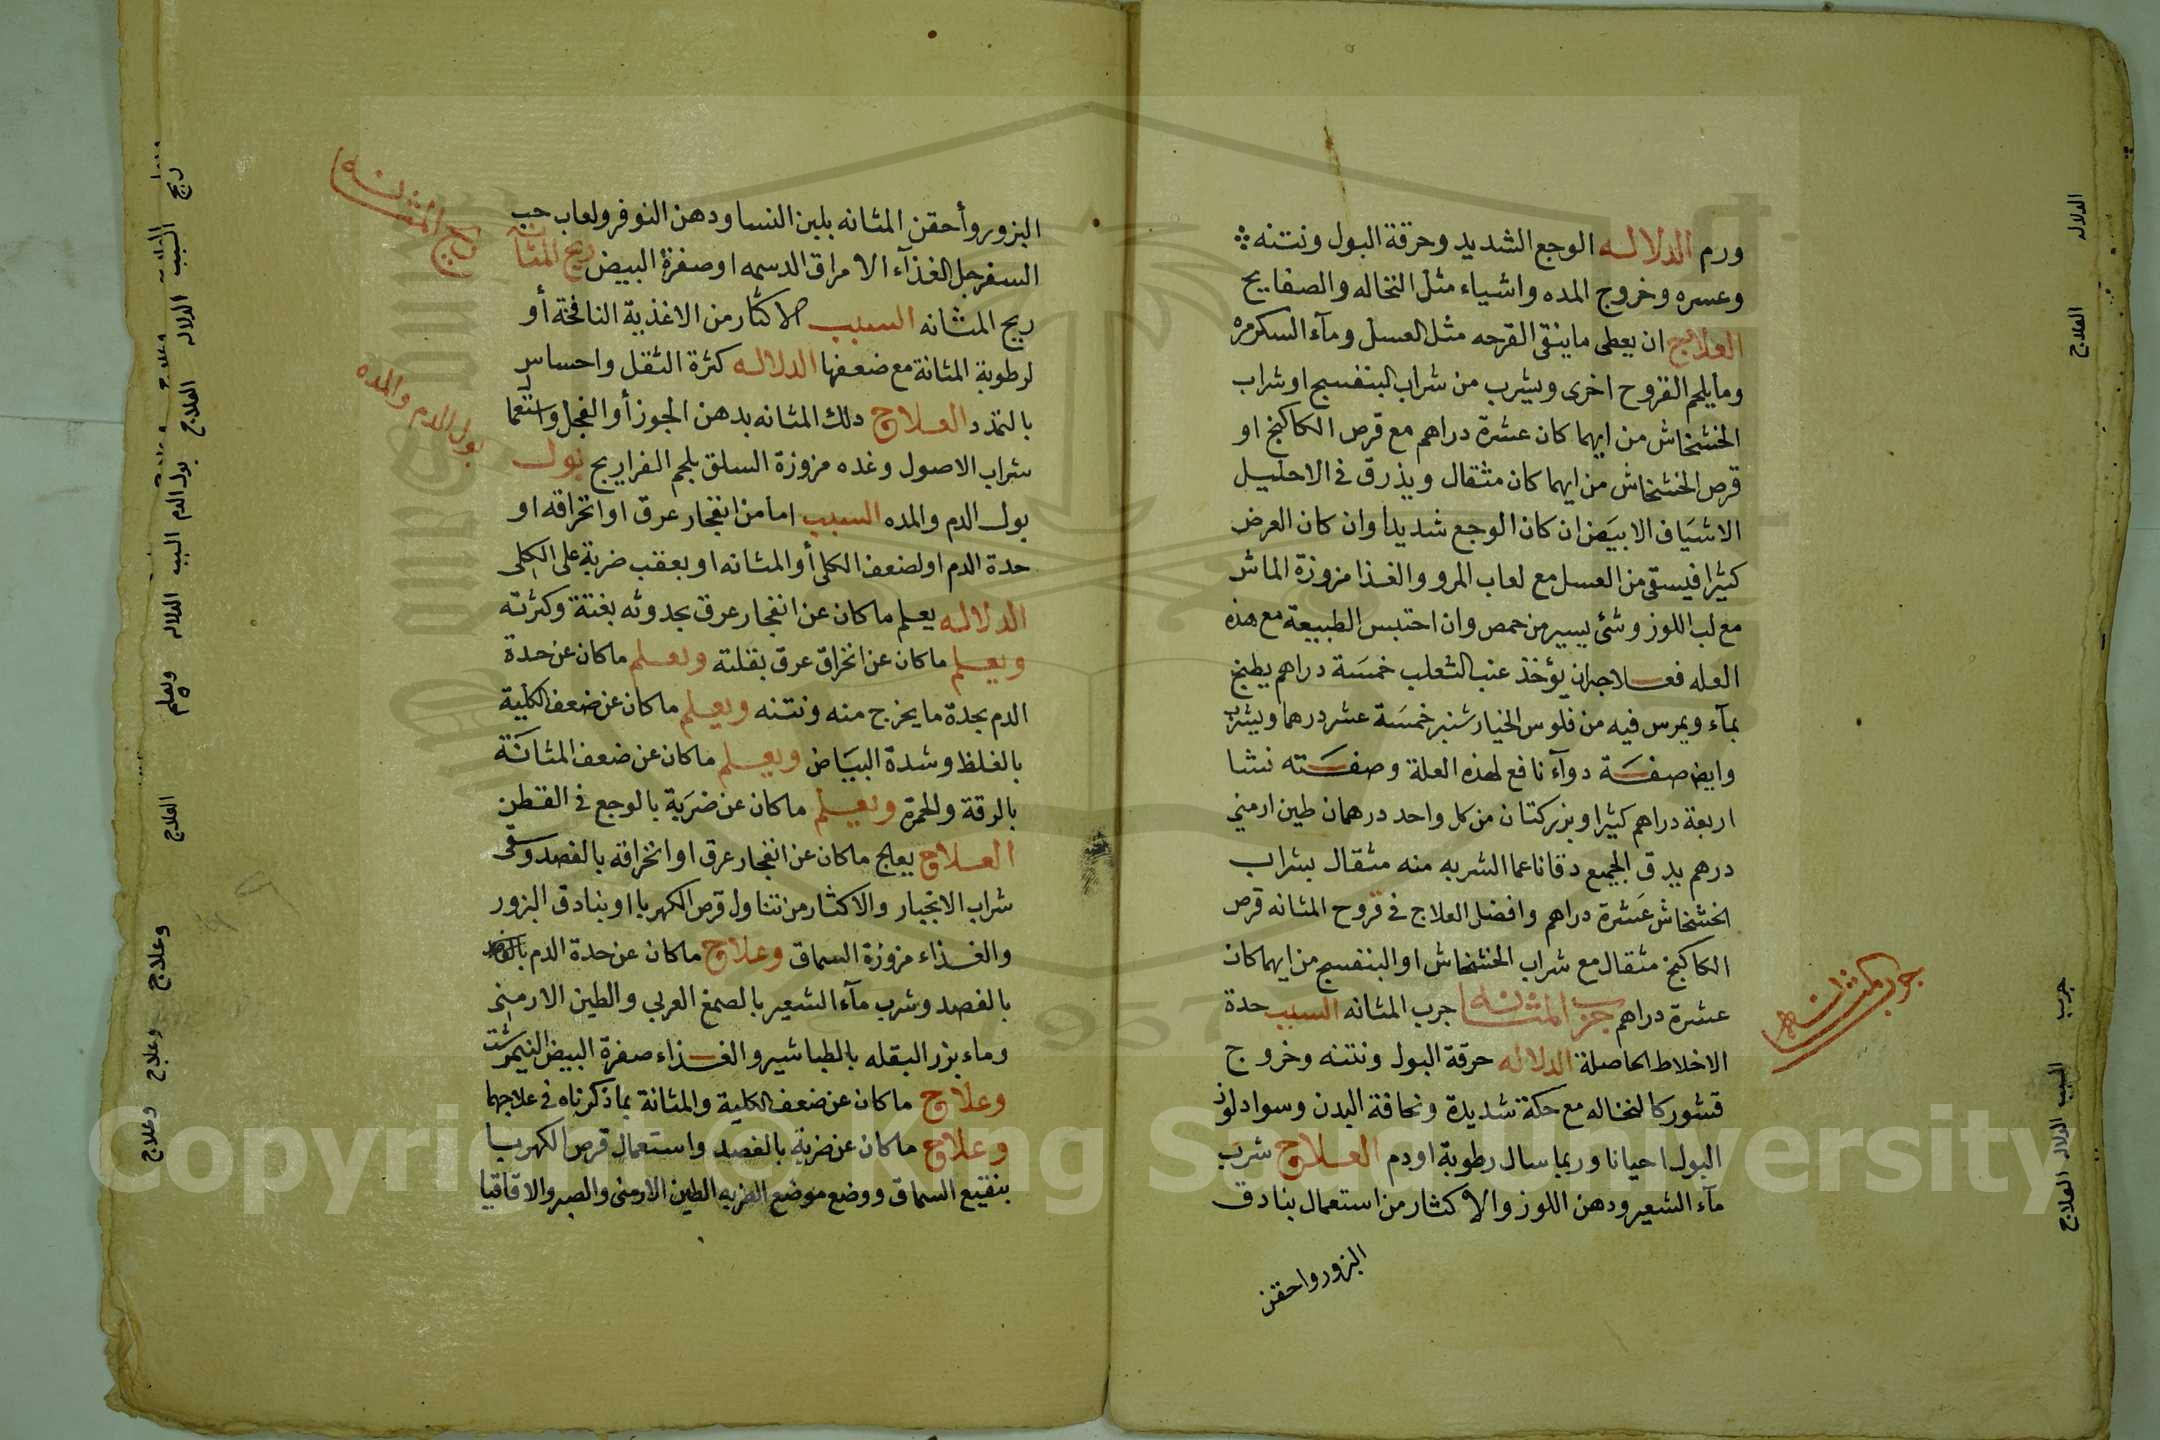 ورم الدلاله الوجع الشديد وحرقة البول ونتنه
وعسره وخروج المده واشياء مثل النخاله والصفايح
العلاج ان يعطى ما ينقى القرحه مثل العسل ومآء السكر مره
ومايلحم القروح اخرى ويشرب من شراب البنفسج او شراب
الخشخاش من ايهما كان عشرة دراهم مع قرص الكاكنج او
قرص الخشخاش من ايهما كان مثقال ويذرق في الاحليل
الاشياف الابيض ان كان الوجع شديدا وان كان العرض
كثيرا فيسقى من العسل مع لعاب المرو والغذا مزوزة الماش
مع لب اللوز وشئ يسير من حمص وان احتبس الطبيعة مع هذه
العله فعلاجه ان يؤخذ عنب الثعلب خمسة دراهم يطبخ
بمآء ويمرس فيه من فلوس الخيار شنبر خمسة عشر درهما ويشرب
وايض صفة دوآء نافع لهذه العلة وصفته نشا
اربعة دراهم كثيرا وبزر كتان من كل واحد درهمان طين ارمني
درهم يدق الجميع دقا ناعما الشربه منه مثقال بشراب
الخشخاش عشرة دراهم وافضل العلاج في قروح المثانه قرص
الكاكنج مثقال مع شراب الخشخاش او البنفسج من ايهما كان
عشرة دراهم جرب المثانه جرب المثانه السبب حدة
الاخلاط الحاصلة الدلاله حرقة البول ونتنه وخروج
قشور كالنخاله مع حكة شديدة ونحافة البدن وسواد لون
البول احيانا وربما سال رطوبة او دم العلاج شرب
مآء الشعير ودهن اللوز والاكثار من استعمال بنادق
البزور واحقن
جرب مثانه
الدلاله
العلاج
جرب
السبب
الدلاله
العلاج
البزور وأحقن المثانه بلبن النسا ودهن النوفر ولعاب حب
السفرجل الغذآء الامراق الدسمه او صفرة البيض ريح المثا
ريح المثانه السبب الاكثار من الاغذية النافخة أو
لرطوبة المثانة مع ضعفها الدلاله كثرة الثقل واحساس
بالتمدد العلاج دلك المثانه بدهن الجوز أو الفجل واستعما
شراب الاصول وغده مزوزة السلق بلحم الفراريج بول
بول الدم والمده السبب اما من انفجار عرق او انخراقه او
حدة الدم او لضعف الكلى أو المثانه او بعقب ضربة على الكلى
الدلاله يعلم ماكان عن انفجار عرق بحدوثه بغتة وكثرته
ويعلم ماكان عن انخراق عرق بقلته ويعلم ماكان عن حدة
الدم بحدة مايخرج منه ونتنه ويعلم ماكان عن ضعف الكلية
بالغلظ وشدة البياض ويعلم ماكان عن ضعف المثانة
بالرقة والحمرة ويعلم ماكان عن ضربة بالوجع في القطن
العلاج يعالج ماكان عن انفجار عرق او انخراقه بالفصد وسقى
شراب الانجبار والاكثار من تناول قرص الكهربا او بنادق البزور
والغذاء مزوزة السماق وعلاج ماكان عن حدة الدم
بالفصد وشرب مآء الشعير بالصمغ العربي والطين الارمنى
وماء بزر البقله بالطباشير والغذاء صفرة البيض النيمرشت
وعلاج ماكان عن ضعف الكلية والمثانة بما ذكرناه في علاجهما
وعلاج ماكان عن ضربة بالفصد واستعمال قرص الكهربا
بنقيع السماق ووضع موضع الضربه الطين الارمنى والصبر والاقاقيا
ريح المثانه
بول الدم والمده
ريح
السبب
الدلاله
العلاج
بول الدم
السبب
الدلاله
ويعلم
العلاج
وعلاج
وعلاج
وعلاج
1957
Copyright © King Saud University